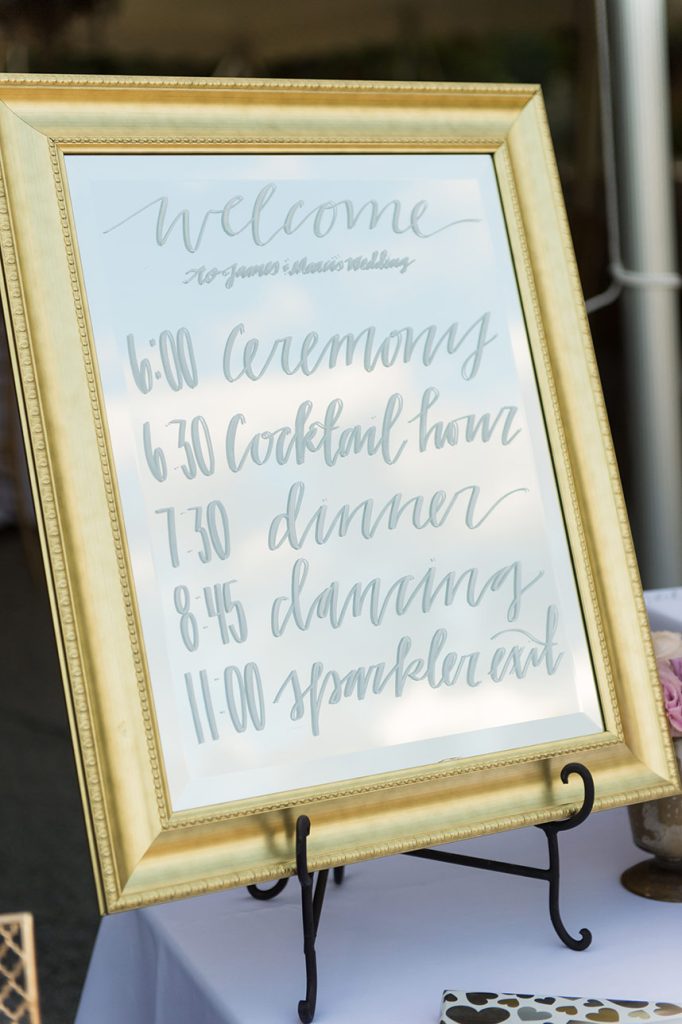 welcome
to James & Marci's Wedding
6:00 Ceremony
6:30 Cocktail hour
7:30 dinner
8:45 dancing
11:00 sparkler exit